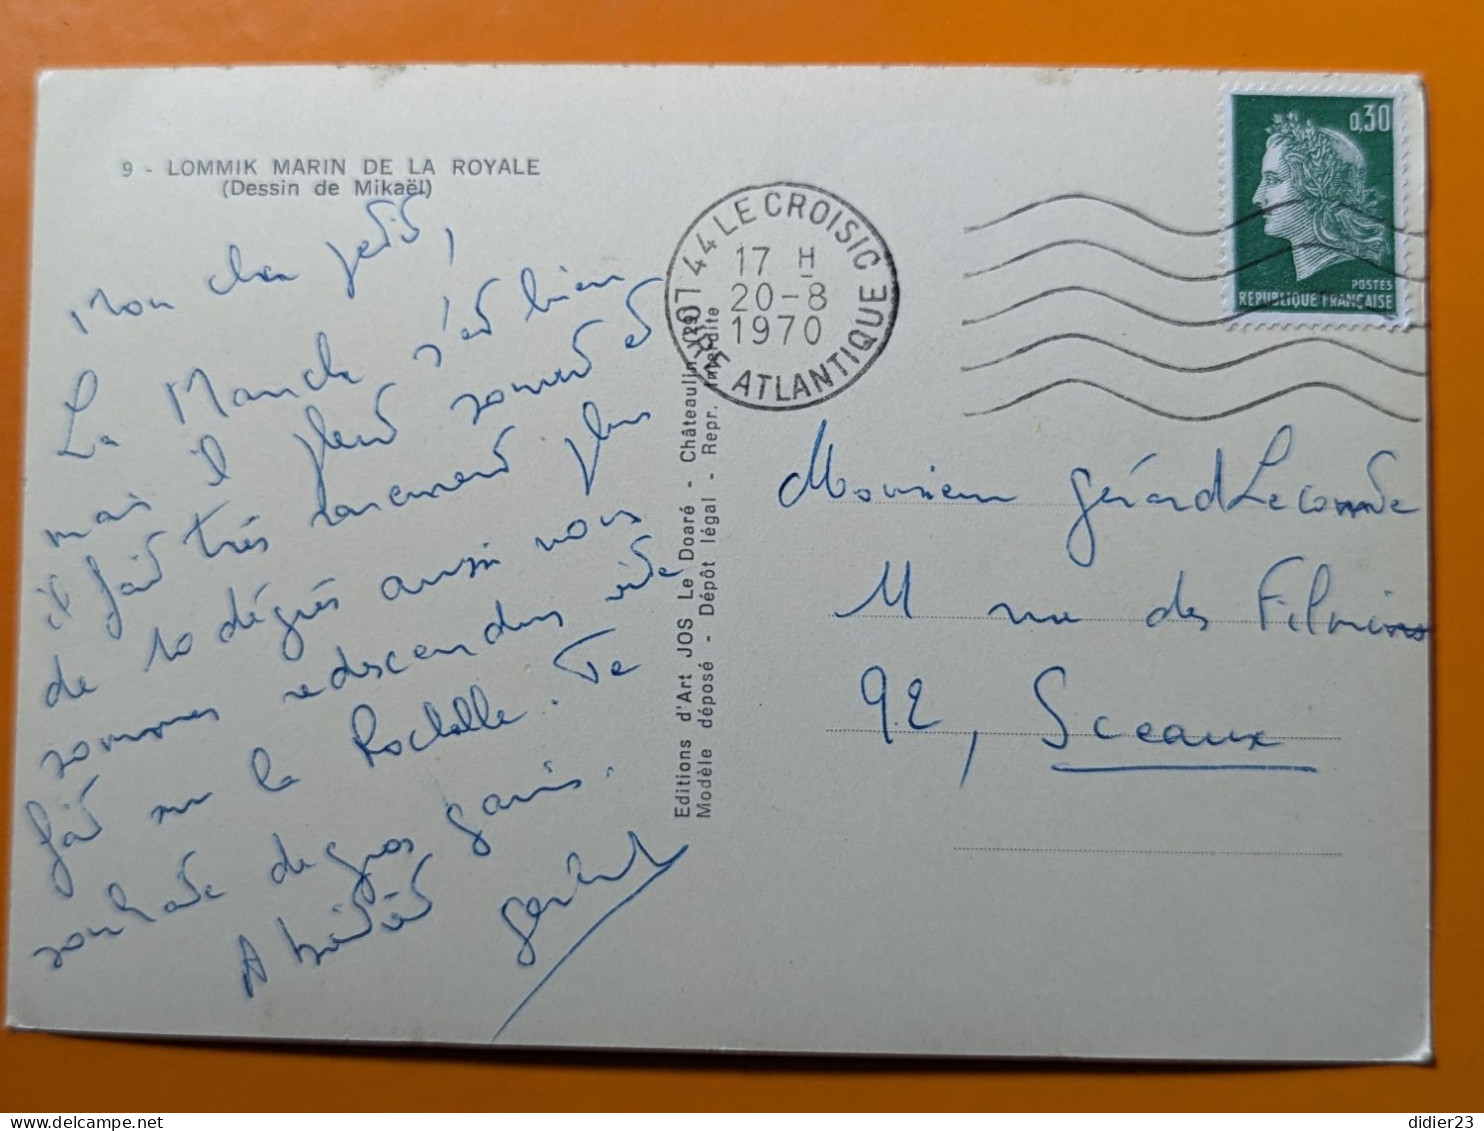 9 - LOMMIK MARIN DE LA ROYALE
(Dessin de Mikaël)
Mon cher
La Manche c'est bien
mais il pleut souvent et
il fait très rarement plus
de 20 degrés aussi nous
sommes redescendus vite
fait sur la Rochelle. Te
souhaite de gros gains.
A bientôt
Editions d'Art JOS Le Doaré - Châteaulin 29
Modèle déposé - Dépôt légal - Repr. interdite
44 LE CROISIC
17 H
20-8
1970
LOIRE ATLANTIQUE
0,30
POSTES
REPUBLIQUE FRANÇAISE
Monsieur Gérard Lecomte
11 rue des
92, Sceaux
didier23